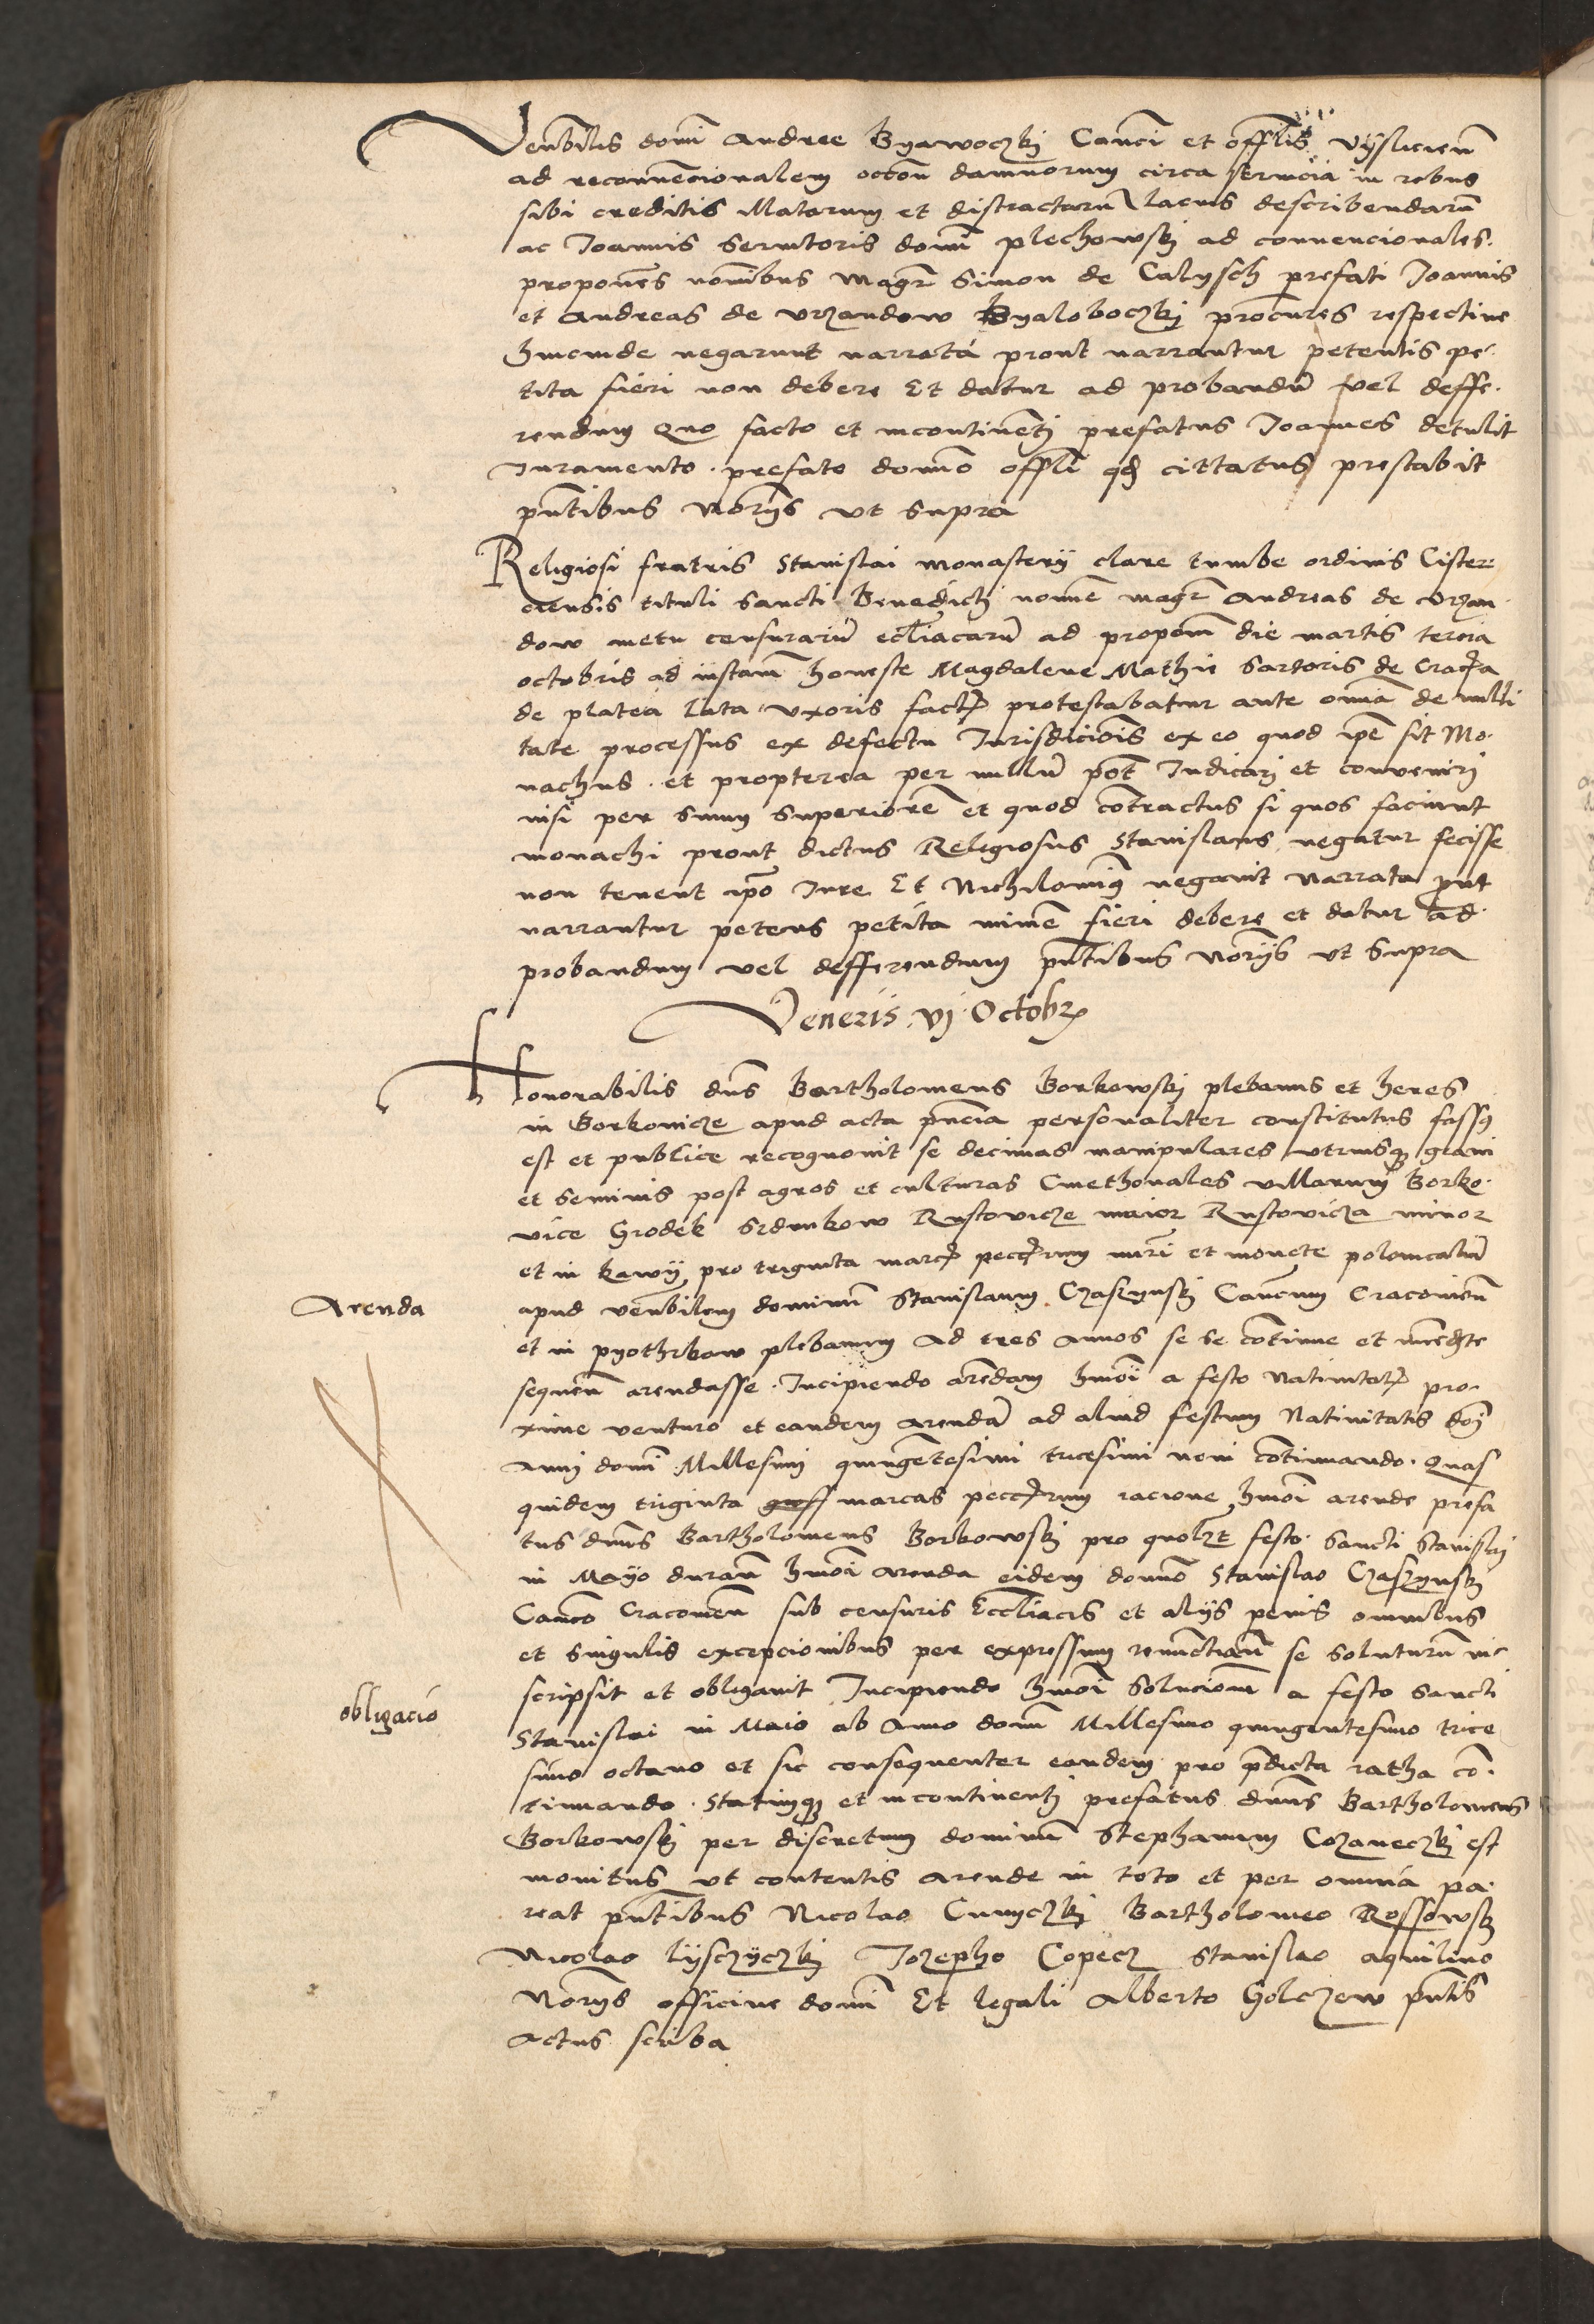 Venebilis domi Andree Byawoczkj Canci et offlis vysliciens
ad reconvencionalem octoni damnorum circa servicia in rebus
sibi creditis Malarum et distractarum lacius describendarum
ac Joannis servitoris domi plechowskj ad convencionales
propones nomibus Magr Simon de Calysch prefati Joannis
et Andreas de vrzandow Byaloboczkj procures respective
hincinde negarunt narrata prout narrantur petentis pe
tita fieri non debere Et datur ad probandum vel deffe
rendum Quo facto et incontinentj prefatus Joannes detulit
Juramento prefato domino offli qd cittatus prestabit
pntibus Norijs vt supra
Religiosi fratris Stanislai monasterij clare tumbe ordinis Cister
ciensis tituli sancti Benedicti nomine magr Andreas de vrzan
dow metu censurarum eccliacarum ad proponem die martis tercia
octobris ad instam honeste Magdalene Mathie sartoris de Cracovia
de platea Lata vxoris fact protestabatur ante omnia de nulli
tate processus ex defectu Jurisdicionis ex eo quod ipse sit Mo
nachus et propterea per nullum pot Judicarj et convenirj
nisi per suum superiorem et quod contractus si quos faciunt
monachi prout dictus Religiosus Stanislaus negatur fecisse
non tenent ipso Jure Et Nichilominus negavit Narrata prout
narrantur petens petita minime fieri debere et datur ad
probandum vel defferendum pntibus Norijs vt supra
Veneris vj Octobr
Honorabilis dns Bartholomeus Borkowskj plebanus et heres
in Borkovicze apud acta pncia personaliter constitutus fassus
est et publice recognovit se decimas manipulares vtriusque grani
et seminis post agros et culturas Cmethonales villarum Borko
vice Grodek Srdunkow Rustovicze maior Rustovicza minor
et in kawij pro triginta marc pecc'rum numi et monete polonicalium
Arenda
apud venebilem dominum Stanislaum Czaszynskj Cancum Cracoviens
et in pyothrkow plebanum Ad tres annos se se continue et immediate
sequens arendasse Incipiendo arendam hmoi a festo Nativitat pro
xime venturo et eandem arendam ad aliud festum Nativitatis doi
Anni domi Millesimi quingentesimi tricesimi noni continuando Quas
quidem triginta marcas pecc'rum racione hmoi arende prefa
tus dnus Bartholomeus Borkowskj pro quolzt festo Sancti Stanislaj
in Mayo durann hmoi arenda eidem domino Stanislao Czaszynskj
Canco Cracovien sub censuris Eccliacis et alijs penis omnibus
et singulis excepcionibus per expressum renunctiann se soluturum in
obligacio
scripsit et obligavit Incipiendo hmoi solucionem a festo Sancti
Stanislai in Maio ab Anno domi Millesimo quingentesimo trice
simo octavo et sic consequenter eandem pro predicta ratha con
tinuando Statimque et incontinentj prefatus dnus Bartholomeus
Borkowskj per discretum dominum Stephanum Cozaneczkj est
monitus vt contentis arende in toto et per omnia pa
reat pntibus Nicolao Cunyczkj Bartholomeo Rossowskj
Nicolao lysczyczkj Jozepho Copecz Stanislao aquilino
Norijs officine domi Et legali Alberto Golczew pntis
Actus scriba